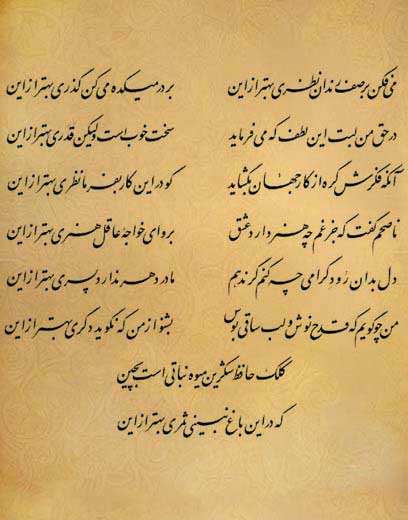 می فکن بر صف رندان نظری بهتر از این بر در میکده می کن گذری بهتر از این
در حق من لبت این لطف که می فرماید سخت خوب است ولیکن قدری بهتر از این
آنکه فکرش گره از کار جهان بگشاید گو در این کار بفرما نظری بهتر از این
ناصحم گفت که جز غم چه هنر دارد عشق بروای خواجهٔ عاقل هنری بهتر از این
دل بدان رود گرامی چه کنم گر ندهم مادر دهر ندارد پسری بهتر از این
من چو گویم که قدح نوش و لب ساقی بوس بشنو از من که نگوید دگری بهتر از این
کلک حافظ شکرین میوه نباتی است بچین
که در این باغ نبینی ثمری بهتر از این